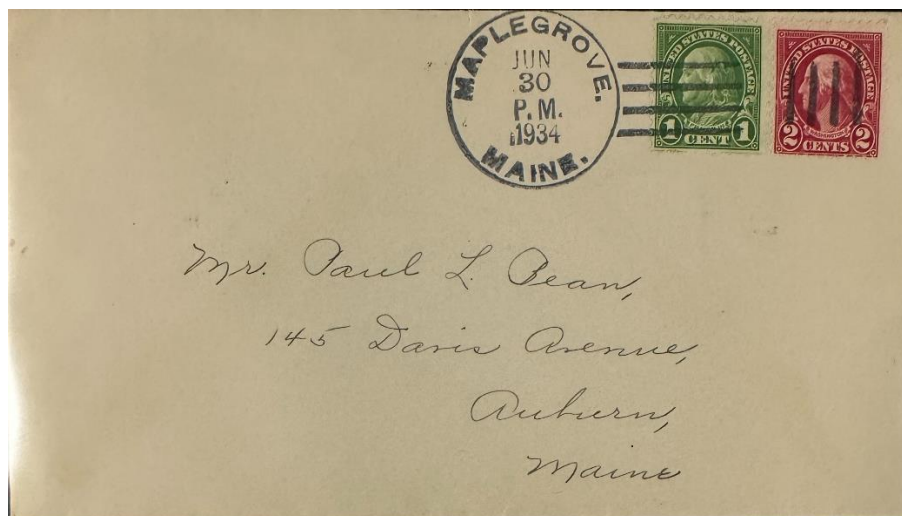 MAPLEGROVE.
JUN
30
P.M.
1934
MAINE.
UNITED STATES POSTAGE
1 CENT 1
UNITED STATES POSTAGE
WASHINGTON
2 CENTS 2
Mr. Paul L. Bean,
145 Davis Avenue,
Auburn,
Maine